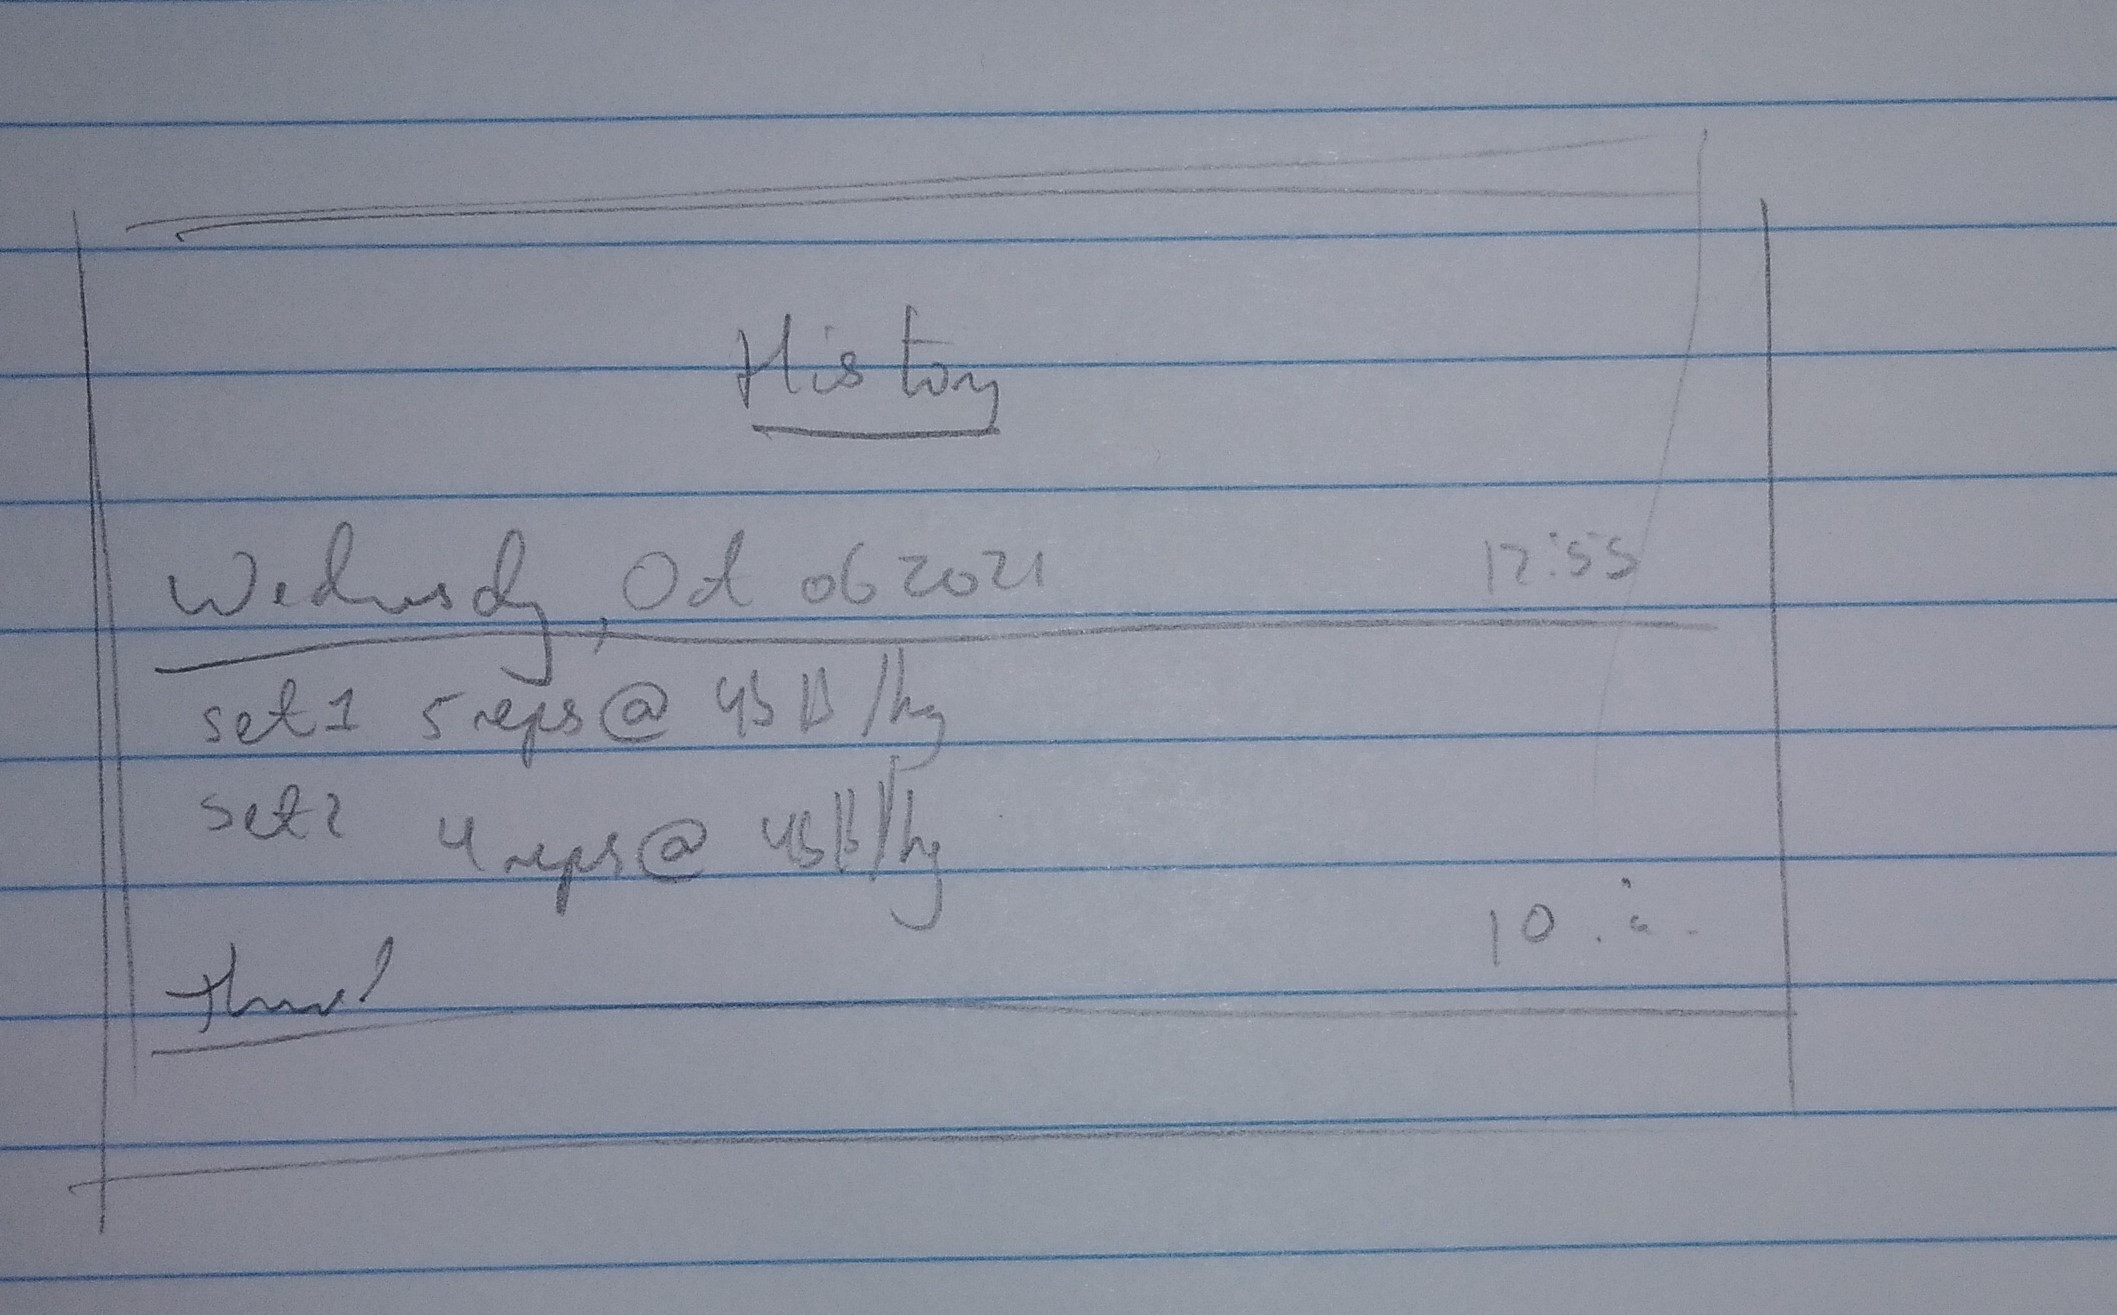 History
Wednesday, Oct 06 2021 12:55
set 1 5 reps @ 45 lb/kg
set 2 4 reps @ 45 lb/kg
10